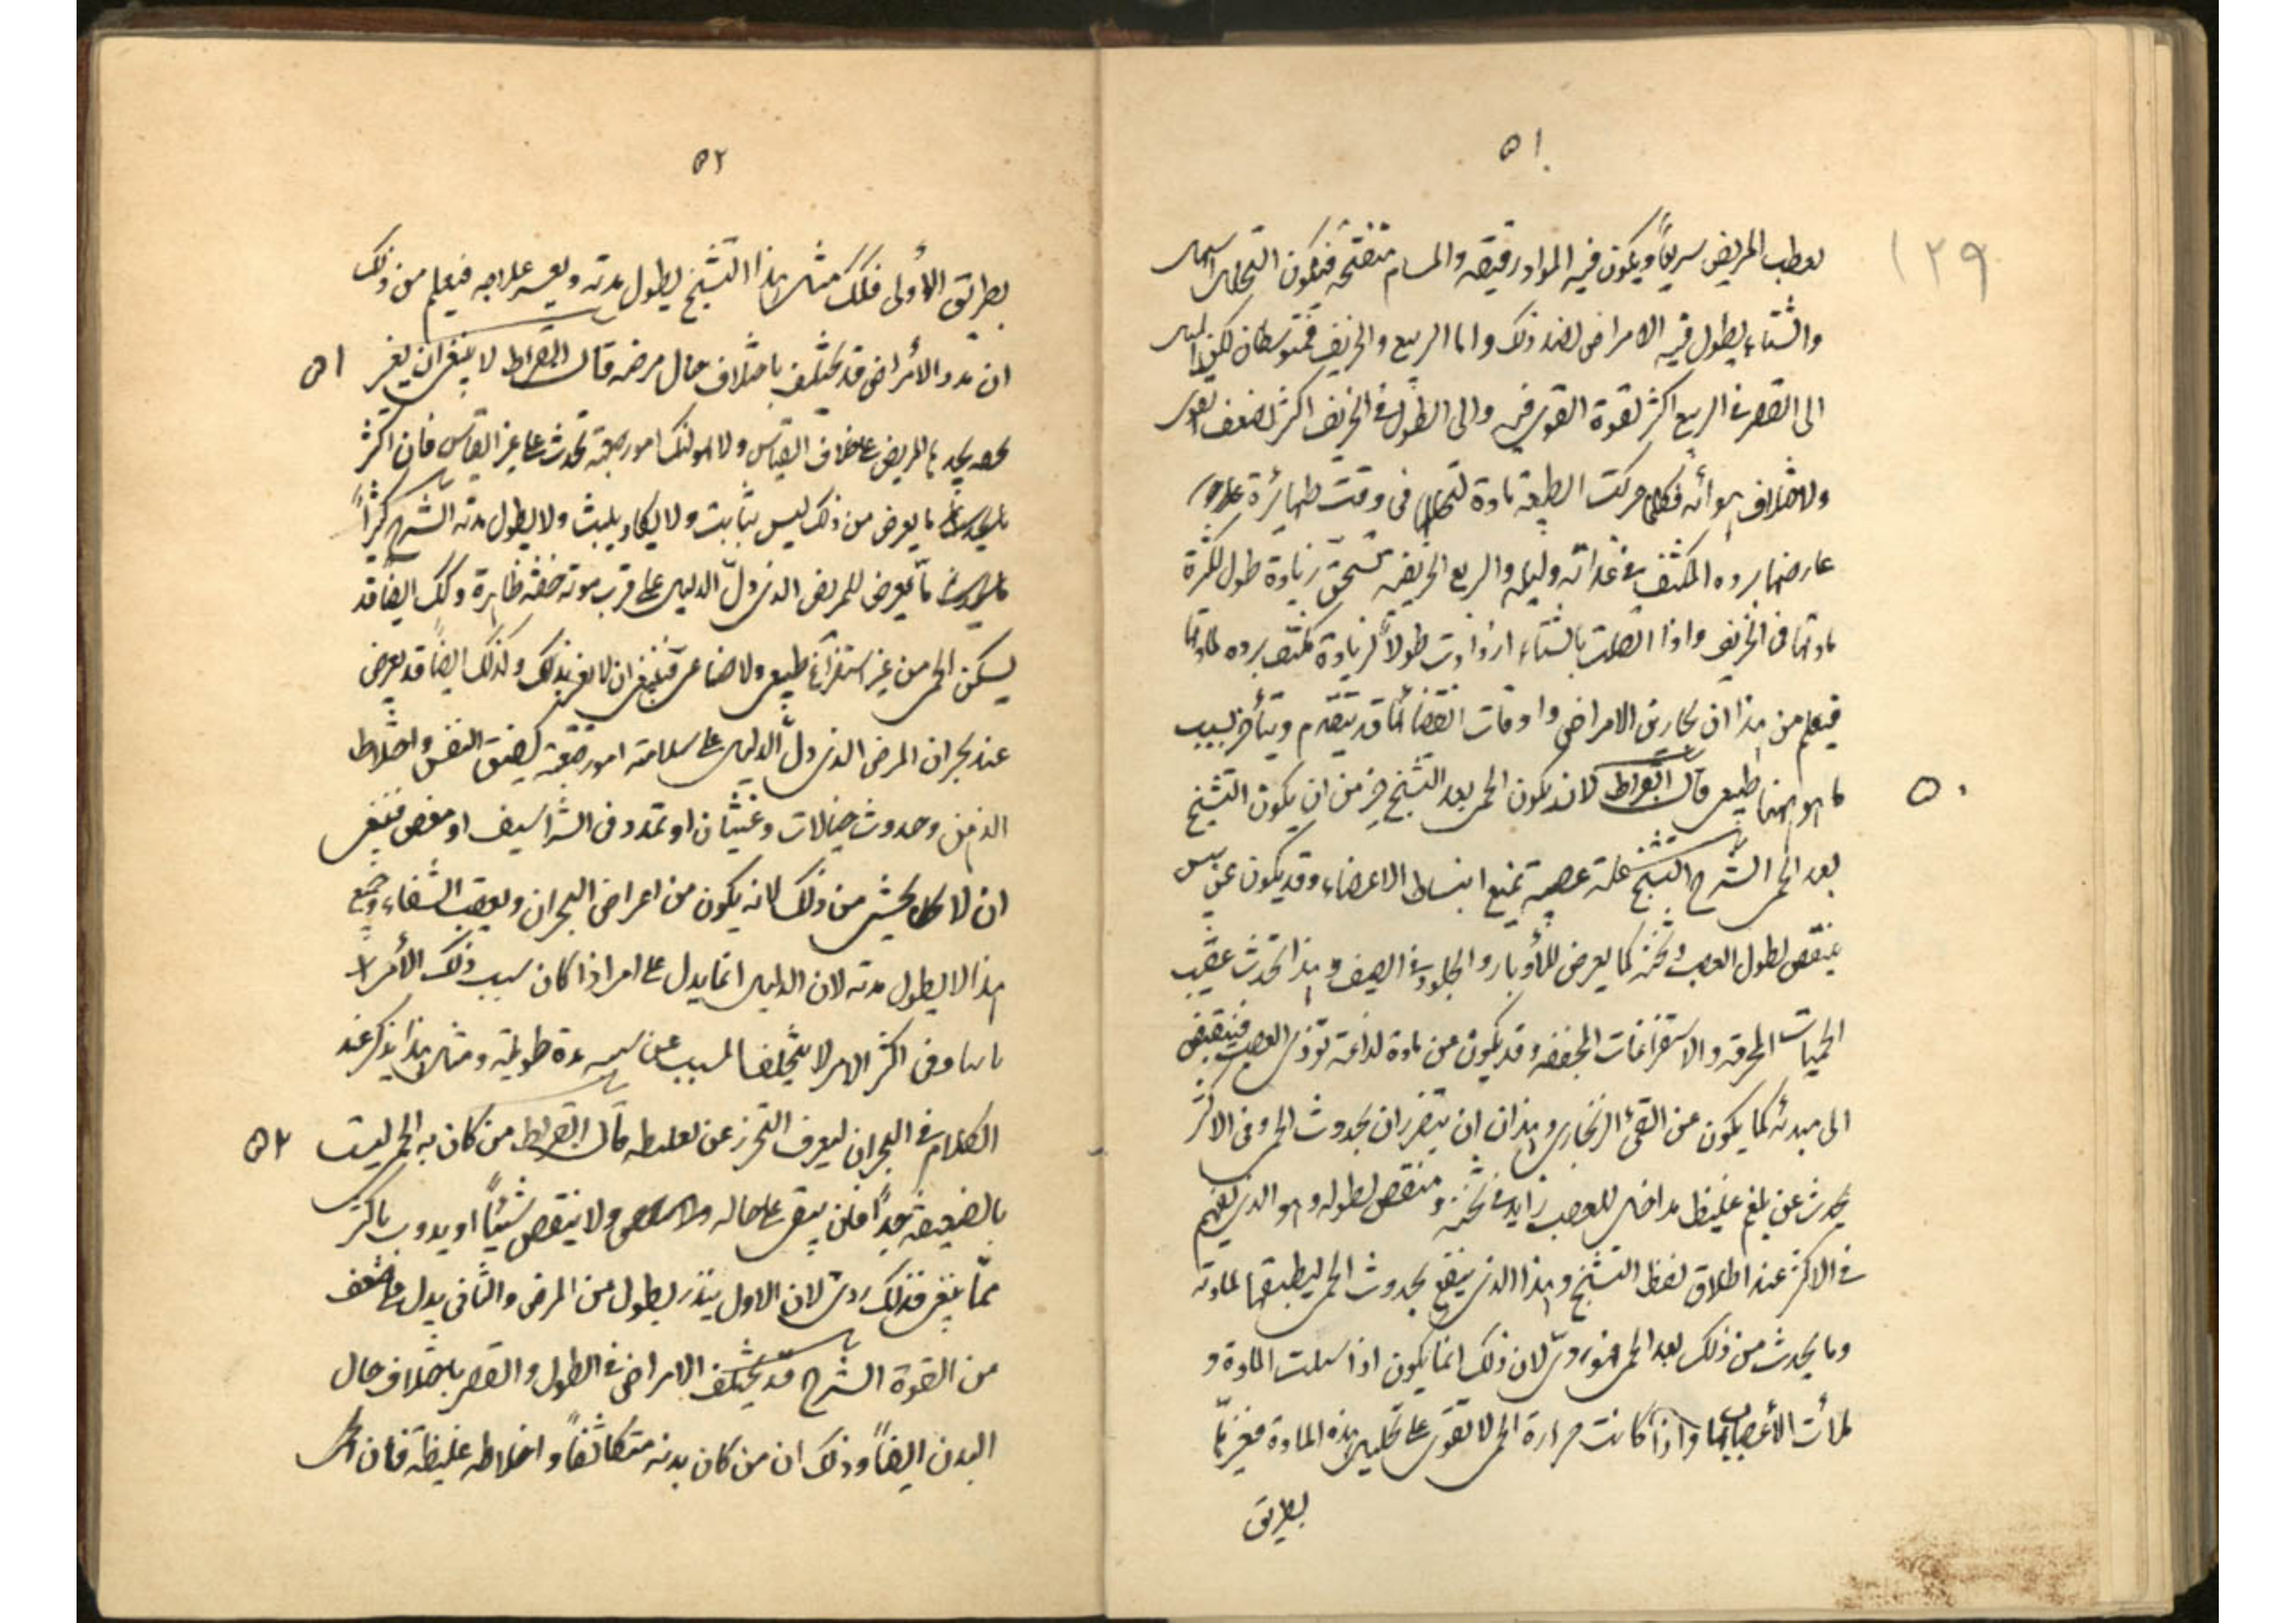 ٥١
١٢٩
يعطب المريض سريعاً ويكون فيه المواد رقيقة والمسام متفتحة فيكون التحلل اسهل
والشتاء يطول فيه الامراض لضد ذلك واما الربيع والخريف فمتوسطان لكن الميل
الى القصر فى الربيع اكثر لقوة القوى فيه والى الطول فى الخريف اكثر لضعف القوى
ولاختلاف هوائه فكلما حركت الطبيعة مادة لتحللها فى وقت ظهائره
عارضها برده المكثف فى غدائه وليله والربع الخريفية تستحق زيادة طول لكثرة
مادتها فى الخريف واذا اتصلت بالشتاء ازدادت طولاً لزيادة تكثف برده لمادتها
فيعلم من هذا ان بحارين الامراض واوقات انقضائها قد يتقدم ويتأخر لسبب
ما هو ايضا طبيعى قال ابقراط لان يكون الحمى بعد التشنج خير من ان يكون التشنج
٥٠
بعد الحمى الشرح التشنج علة عصبية تمنع انبساط الاعضاء وقد يكون عن يبس
ينقص لطول العصب وثخنه كما يعرض للأوتار والجلود فى الصيف وهذا تحدث عقيب
الحميات المحرقة والاستفراغات المجففة وقد يكون من مادة لذاعة تؤذى العصب فينقبض
الى مبدئه كما يكون عن القئ الزنجارى وهذان ان يتضرران بحدوث الحمى وفى الاكثر
يحدث عن بلغم غليظ مداخل للعصب زايد فى ثخنه ومنقص لطوله وهو الذى يفهم
فى الاكثر عند اطلاق لفظ التشنج وهذا الذى ينتفع بحدوث الحمى لتلطيفها لمادته
وما يحدث من ذلك بعد الحمى فهو ردئ لان ذلك انما يكون اذا سيلت المادة و
ملأت الأعصاب بها واذا كانت حرارة الحمى لا تقوى على تحليل هذه المادة فغيرها
بطريق
٥٢
بطريق الأولى فلك مثل هذا التشنج يطول مدته ويعسر علاجه فيعلم من ذلك
ان مدد الأمراض قد تختلف باختلاف حال مرضه قال ابقراط لا ينبغى ان يغتر
٥١
بخفة يجدها المريض على خلاف القياس ولا يهولنك امور صعبة تحدث على غير القياس فان اكثر
ما يعرض من ذلك ليس بثابت ولا يكاد يلبث ولا يطول مدته الشرح كثيراً
ما يعرض للمريض الذى دلّ الدليل على قرب موته خفة ظاهرة وكذلك ايضاً قد
يسكن الحمى من غير استفراغ طبيعى ولا صناعى فينبغى ان لا يغتر بذلك وكذلك ايضاً قد يعرض
عند بحران المرض الذى دلّ الدليل على سلامته امور صعبة كضيق النفس واختلاط
الذهن وحدوث خيالات وغثيان او تمدد فى الشراسيف او مغص فينبغى
ان لا يخشى من ذلك لانه يكون من اعراض البحران ويعقبه الشفاء وجميع
هذا لا يطول مدته لان الدليل انما يدل على امر اذا كان سبب ذلك الأمر
وفى اكثر الامر لا يتخلف المسبب عن سببه مدة طويلة ومثل هذا يذكر عند
الكلام فى البحران ليعرف التحرز عن تغليطه قال ابقراط من كان به الحمى ليست
٥٢
بالضعيفة جداً فلن يبقى على حاله ولا ينقص شيئاً او يذوب باكثر
ممّا ينبغى فذلك ردئ لان الاول ينذر بطول من المرض والثانى يدل على ضعف
من القوة الشرح قد يختلف الامراض فى الطول والقصر باختلاف حال
البدن ايضاً وذلك ان من كان بدنه متكاثفاً واخلاطه غليظة فان